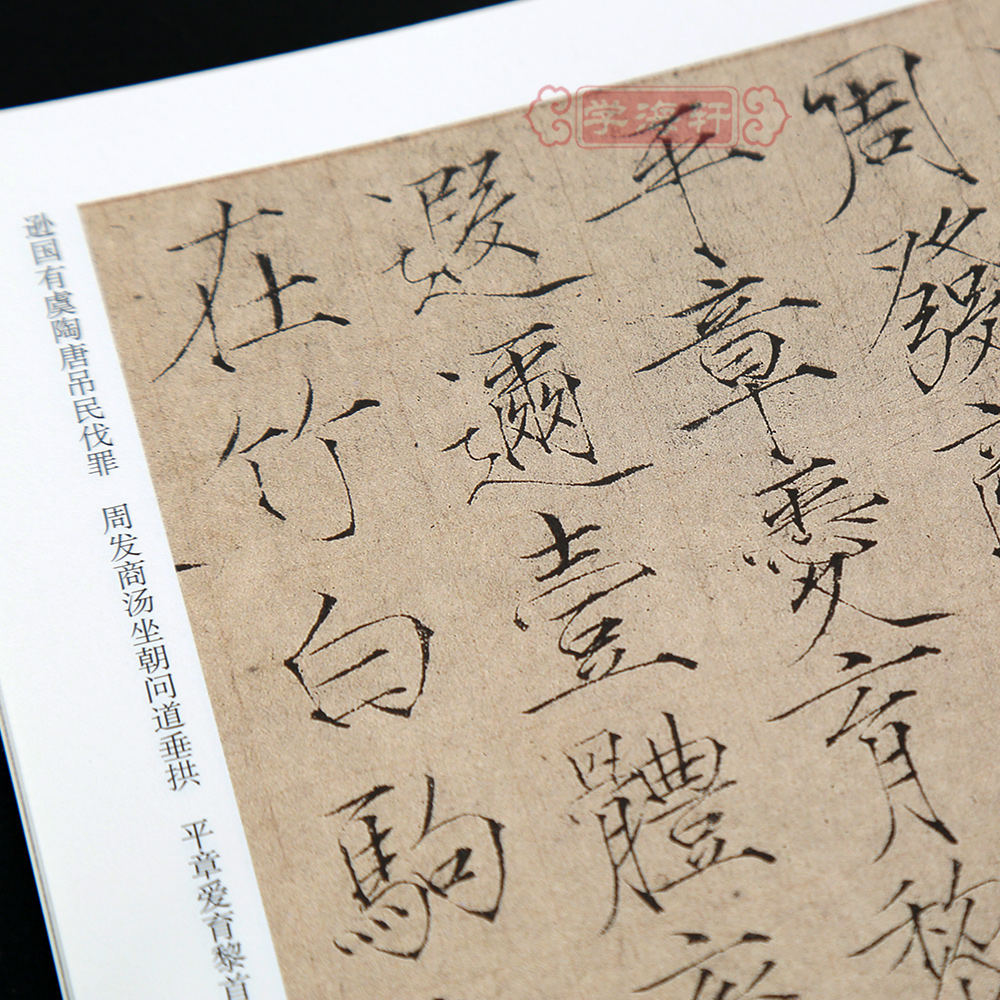 学海轩
周發
平章愛育黎
遐邇壹體
在竹白駒
逊国有虞陶唐吊民伐罪 周发商汤坐朝问道垂拱 平章爱育黎首